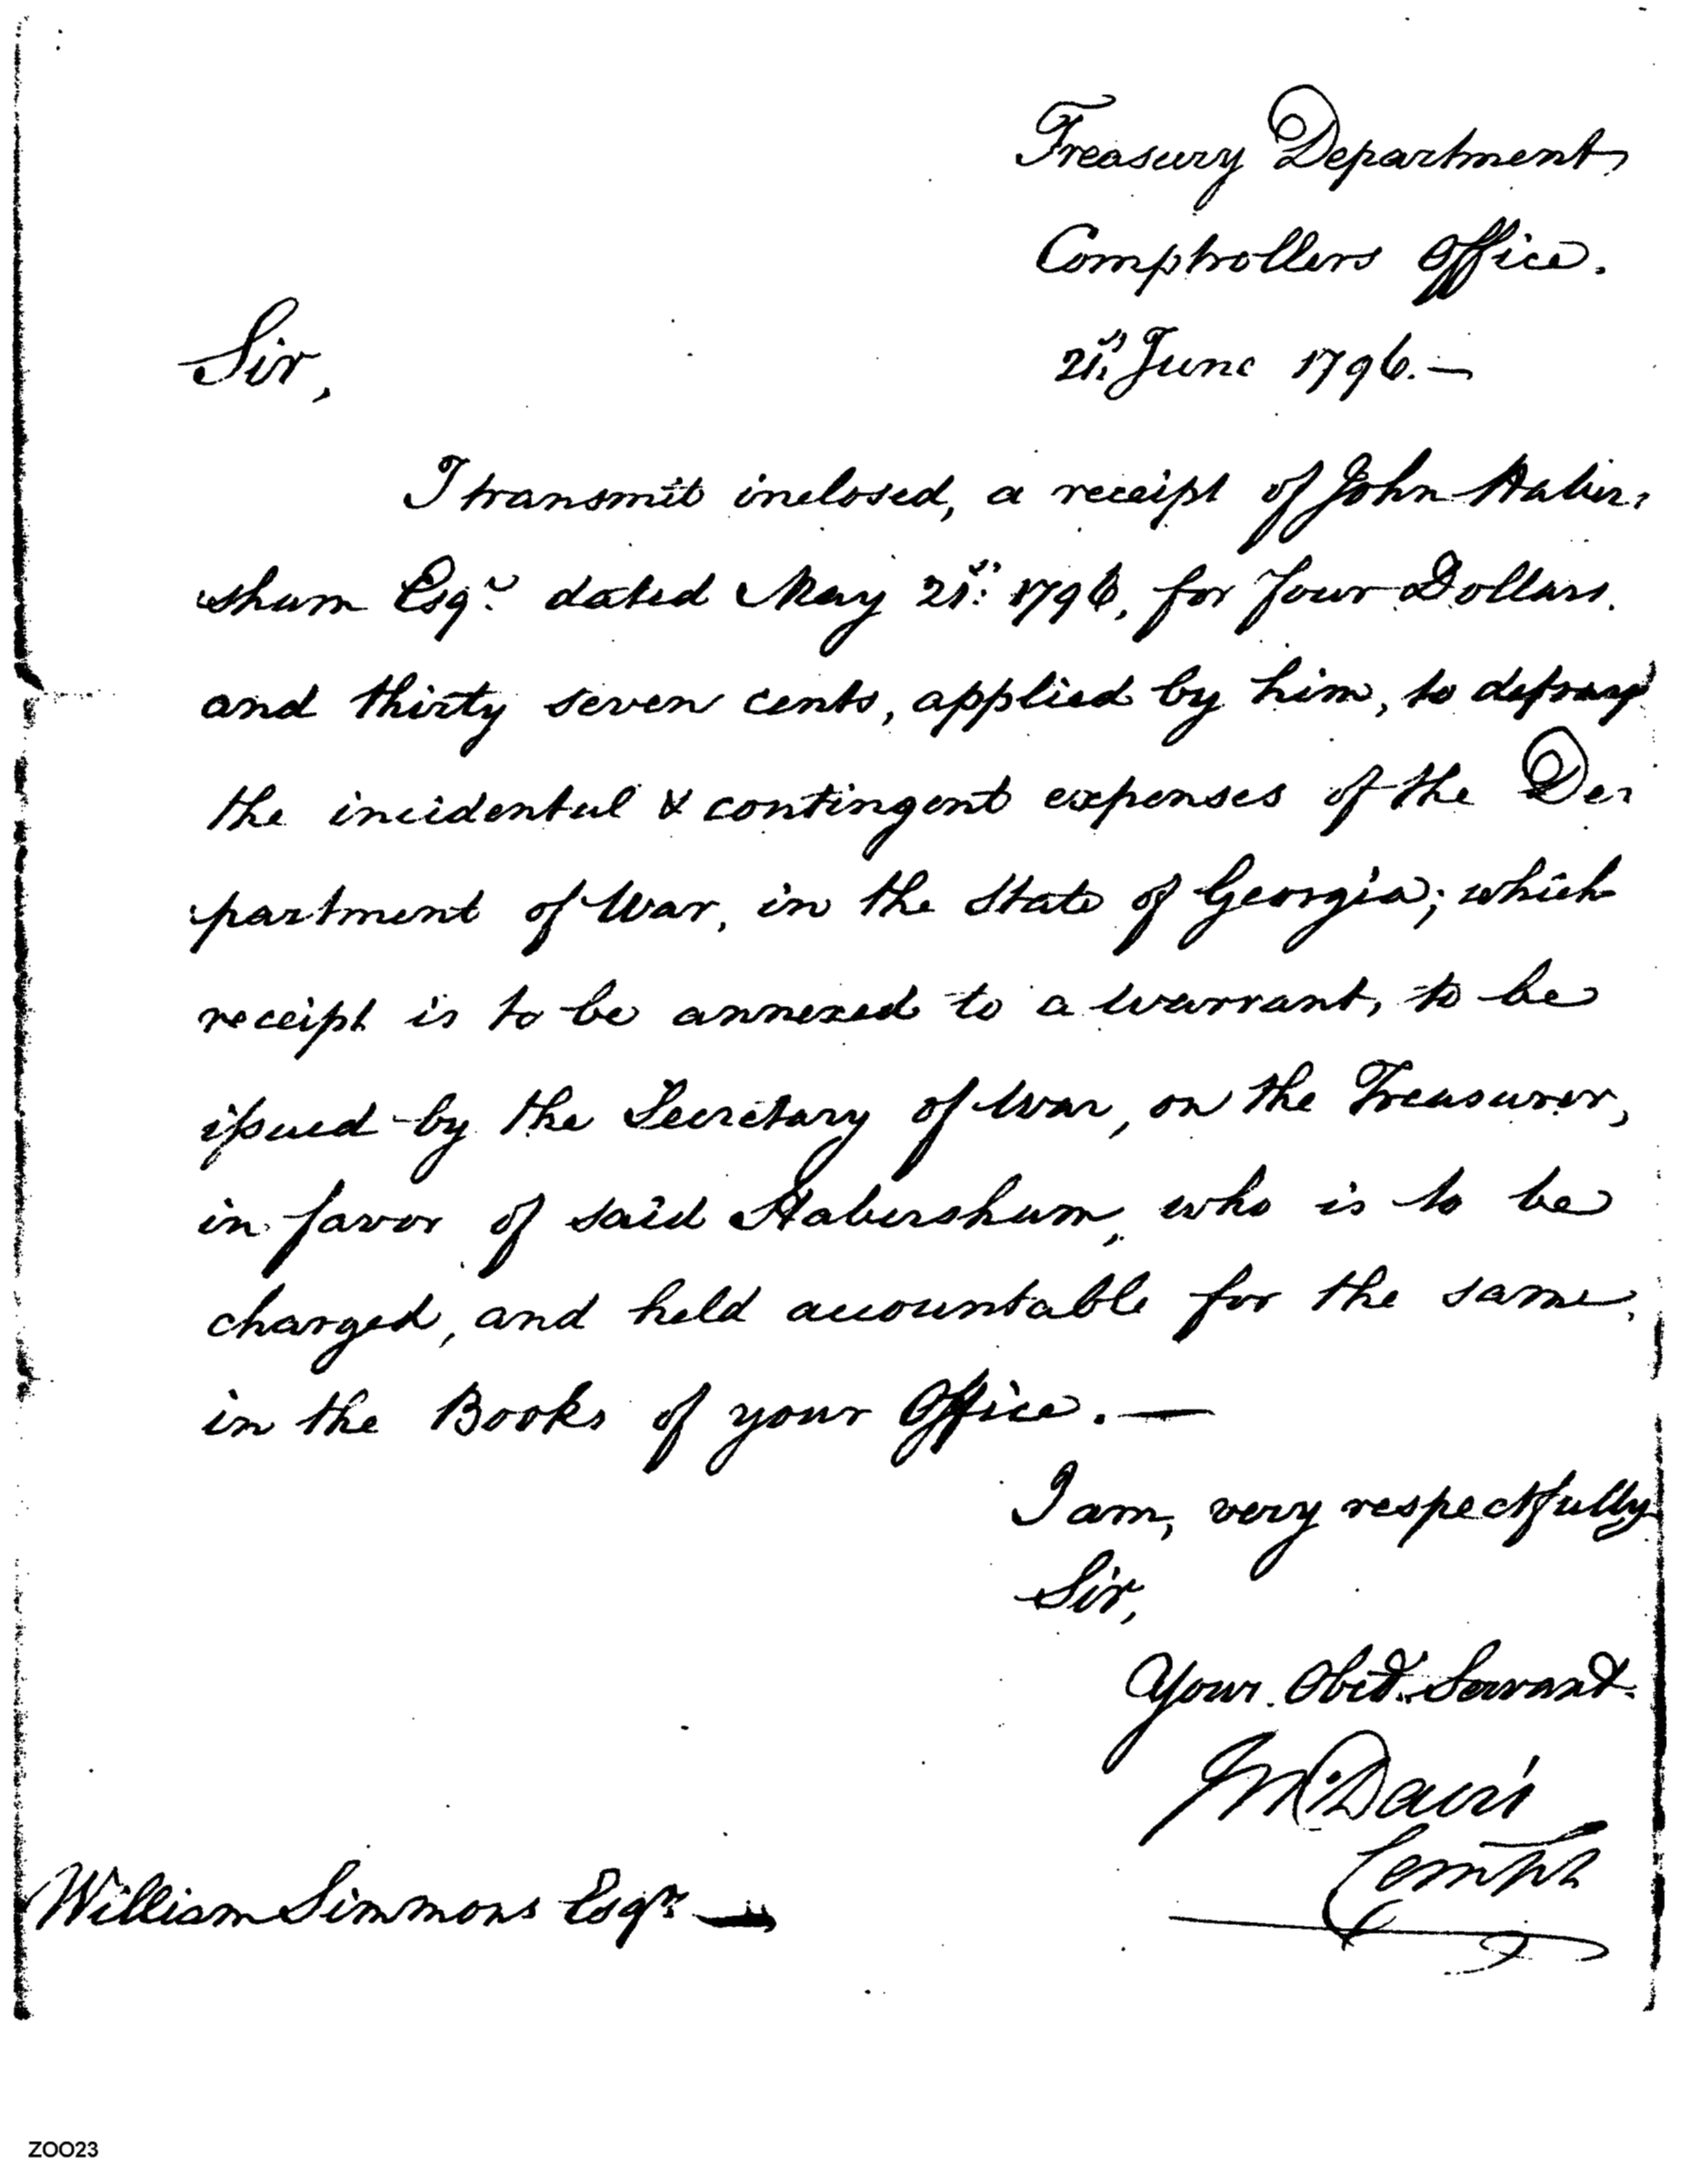 Treasury Department
Comptrollers Office.
21st June 1796.—
Sir,
I transmit inclosed, a receipt of John Haber-
sham Esqr. dated May 21st: 1796, for four Dollars.
and thirty seven cents, applied by him, to defray
the incidental & contingent expenses of the De-
partment of War, in the State of Georgia; which
receipt is to be annexed to a warrant, to be
issued by the Secretary of War, on the Treasurer,
in favor of said Habersham, who is to be
charged, and held accountable for the same,
in the Books of your Office. —
I am, very respectfully
Sir,
Your Obed. Servant.
Jn. Davis
Compt
William Simmons Esqr. —
ZOO23